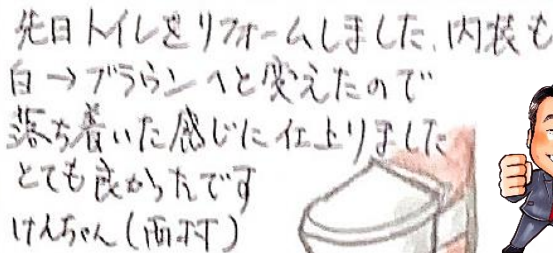 先日トイレをリフォームしました、内装も
白→ブラウンへと変えたので
落ち着いた感じに仕上りました
とても良かったです
けんちゃん(西村)